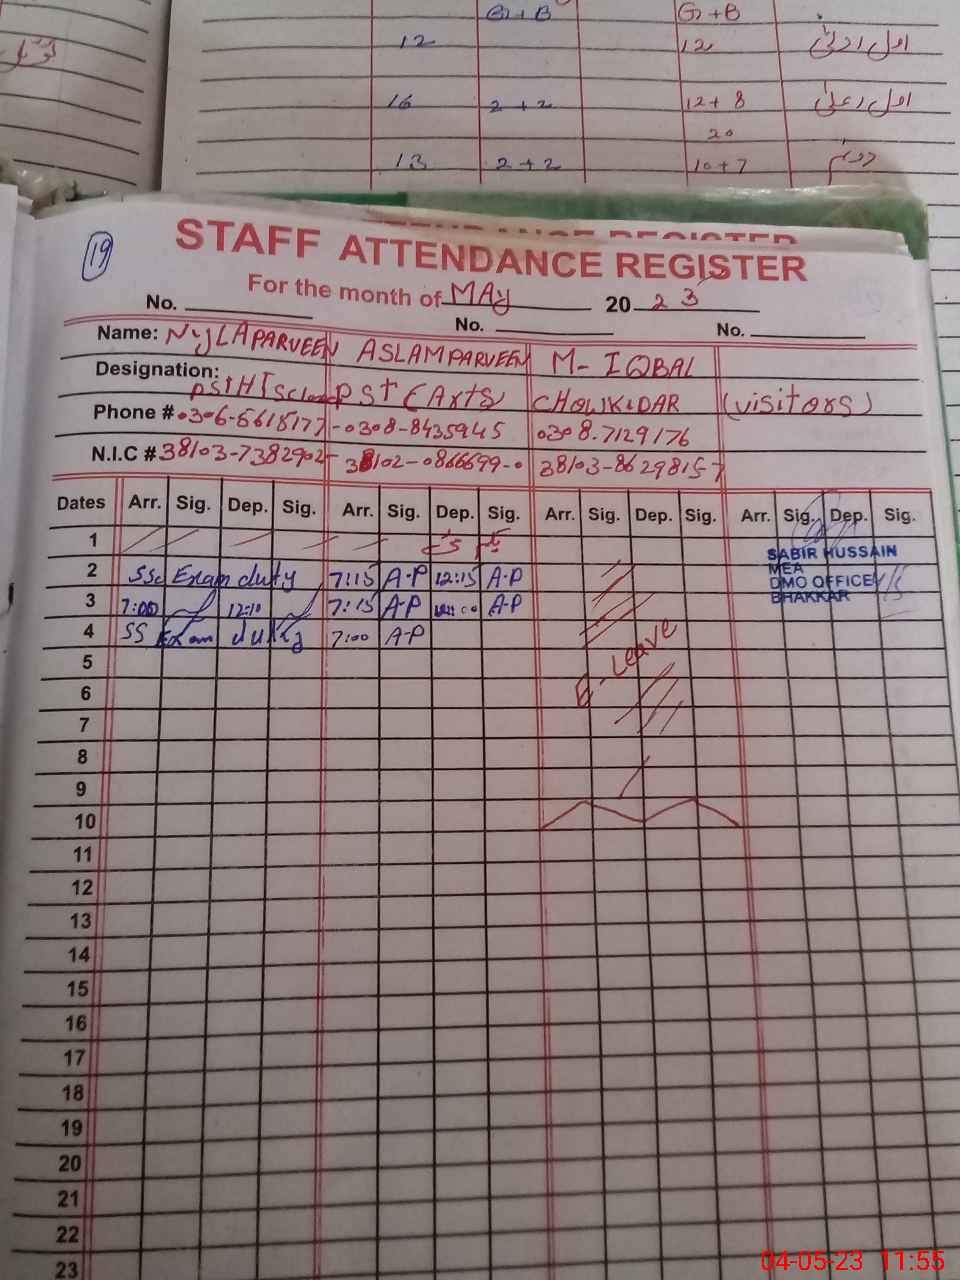 G+B G+B
12 12
16 2+2 12+8
20
13 2+2 10+7
19
STAFF ATTENDANCE REGISTER
For the month of MAy 2023
No. No. No.
Name: NyLAPARVEEN ASLAMPARVEEN M- IQBAL
Designation: PST (Arts) CHOWKIDAR (visitors)
Phone # 0306-5615177 -0308-8435945 0308-7129176
N.I.C # 38103-7382902- 38102-0866699-0 38103-8629815-7
Dates Arr. Sig. Dep. Sig. Arr. Sig. Dep. Sig. Arr. Sig. Dep. Sig. Arr. Sig. Dep. Sig.
1
2 SSc Exam duty 7:15 A-P 12:15 A-P
3 7:00 12:10 7:15 A-P A-P
4 SS Exam duty 7:00 A-P
SABIR HUSSAIN
MEA
DMO OFFICE
BHAKKAR
E-Leave
5
6
7
8
9
10
11
12
13
14
15
16
17
18
19
20
21
22
23
04-05-23 11:55